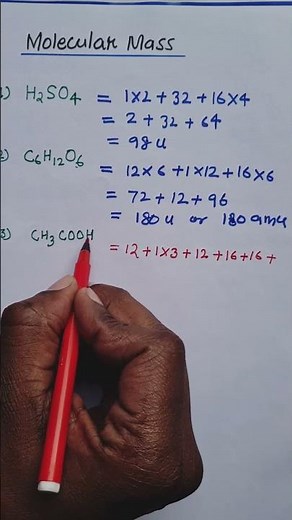 Molecular Mass
1) H2SO4 = 1x2 + 32 + 16x4
= 2 + 32 + 64
= 98 u
2) C6H12O6 = 12x6 + 1x12 + 16x6
= 72 + 12 + 96
= 180 u or 180 amu
3) CH3COOH = 12 + 1x3 + 12 + 16 + 16 +